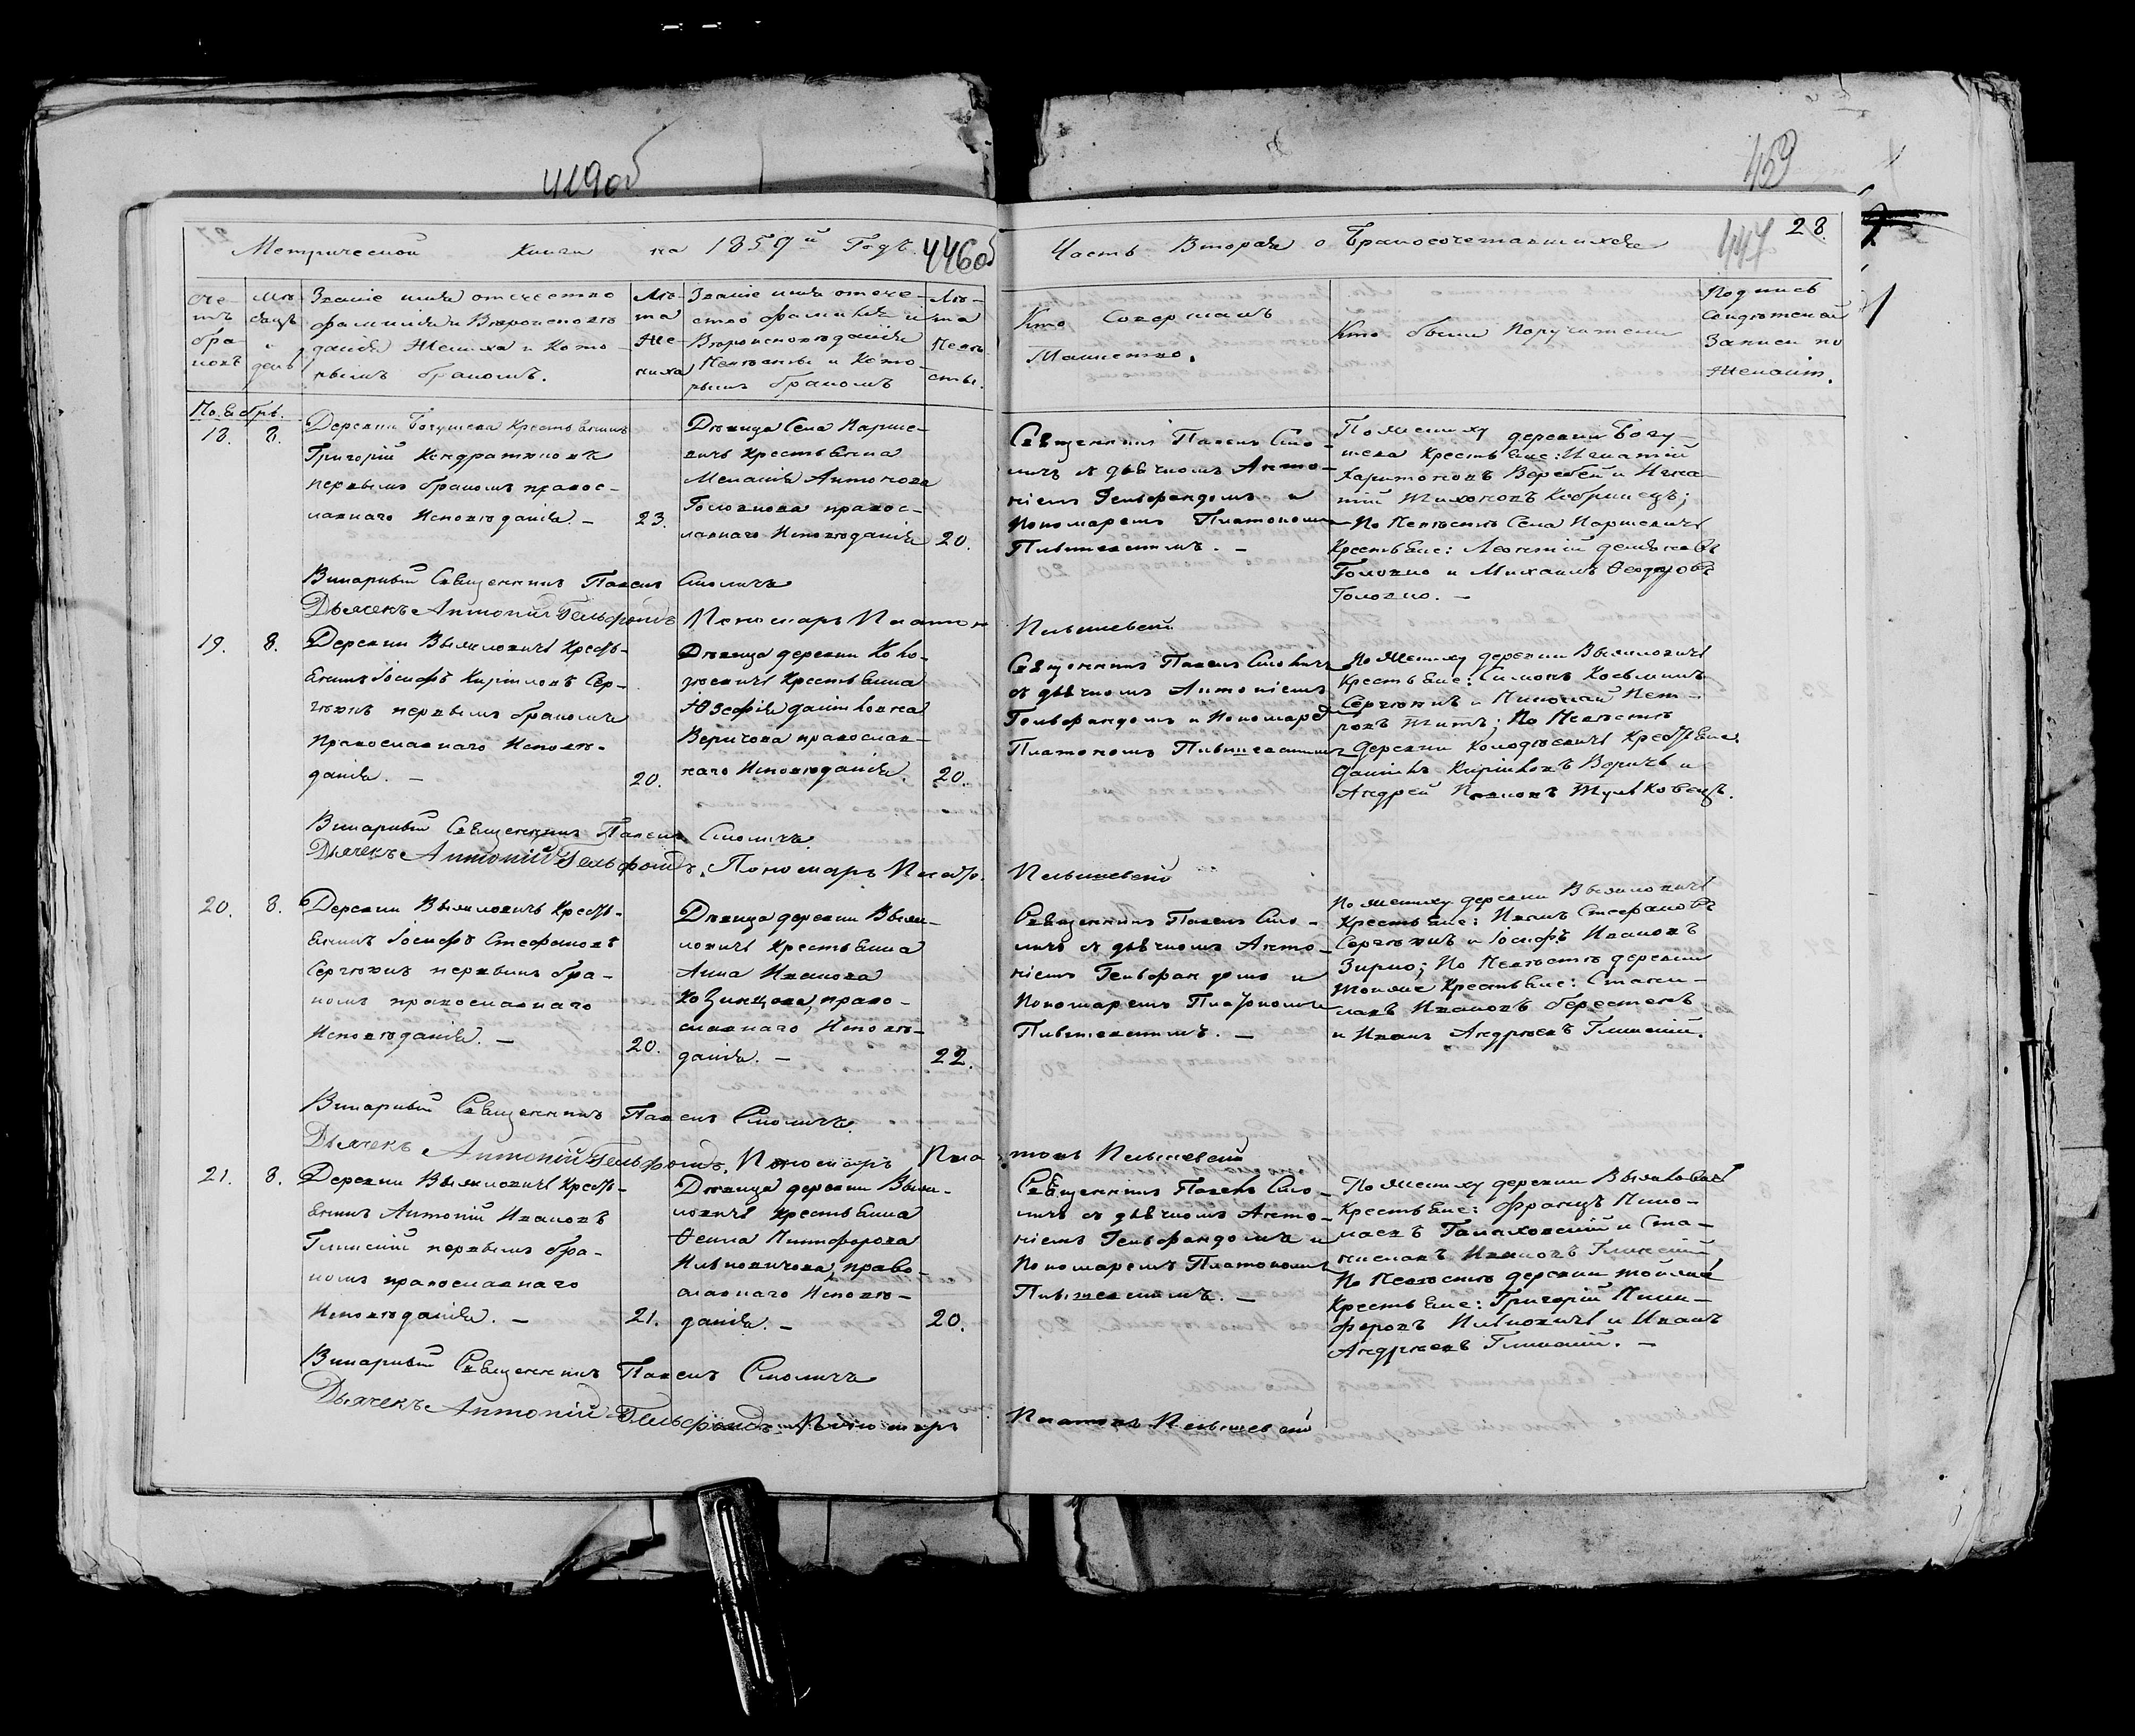 419 об
459
Метрической Книги на 1859й Годъ.
446 об
Часть Вторая о Бракосочетавшихся
447
28.
Сче-
тъ
бра-
ковъ
Мѣ-
сяцъ
и
день
Званіе имя отчество
фамилія и Вѣроисповѣ-
данія Жениха и Кото-
рымъ бракомъ.
Лѣ-
та
Же-
ниха
Званіе имя отче-
ство фамилія и
Вѣроисповѣданія
Невѣсты и Кото-
рымъ бракомъ
Лѣ-
та
Невѣ-
сты.
Кто Совершалъ
Таинство.
Кто были Поручители
Подпись
Свидѣтелей
Записи по
Желанію.
Ноябрь.
18.
8.
Деревни Богушева Крестьянинъ
Григорій Кондратиковъ
первымъ бракомъ правос-
лавнаго Исповѣданія. –
23.
Дѣвица Села Парше-
вичъ Крестьянка
Меланія Антонова
Головнова правос-
лавнаго Исповѣданія
20.
Священникъ Павелъ Смо-
личъ съ дьячкомъ Анто-
ніемъ Гельфандомъ и
Пономаремъ Платономъ
По жениху деревни Богу-
шева Крестьяне: Игнатій
Харитоновъ Воробей и Игна-
тій Тихоновъ Кобринецъ;
По Невѣстѣ Села Паршевичъ
Крестьяне: Леонтій
Головно и Михаилъ Ѳеодоровъ
Головно. –
Викарный Священникъ Павелъ Смоличъ
Дьячекъ Антоній Гельфондъ Пономарь Платон
19.
8.
Деревни Вымловичъ Кресть-
янинъ Іосифъ Кириловъ Сер-
гѣюкъ первымъ бракомъ
Православнаго Исповѣ-
данія. –
20.
Дѣвица деревни Коло-
зѣевичъ Крестьянка
Юзефія Данилова
Веричова православ-
наго Исповѣданія.
20.
Священникъ Павелъ Смоличъ
съ дьячкомъ Антоніемъ
Гельфандомъ и Пономаремъ
Платономъ
По Жениху деревни Вымловичъ
Крестьяне: Симонъ Косьминъ
Сергѣюкъ и Николай Пет-
ровъ Титъ; По Невѣстѣ
Деревни Колодѣевичъ Крестьяне
Даніилъ Кириловъ Веричъ и
Андрей Павловъ
Викарный Священникъ Павелъ Смоличъ
Дьячекъ Антоній Гельфондъ. Пономарь Плато.
20.
8.
Деревни Вымловичъ Кресть-
янинъ Іосифъ Стефановъ
Сергѣюкъ первымъ бра-
комъ православнаго
Исповѣданія. –
20.
Дѣвица деревни Вымл-
ловичъ Крестьянка
Анна Иванова
Козинцова, право-
славнаго Исповѣ-
данія. –
22.
Священникъ Павелъ Смо-
личъ съ дьячкомъ Анто-
ніемъ Гельфандомъ и
Пономаремъ Платономъ
По жениху деревни Вымловичъ
Крестьяне: Иванъ Стефановъ
Сергѣюкъ и Іосифъ Ивановъ
Зирко; По Невѣстѣ деревни
Крестьяне: Станис-
лавъ Ивановъ Берестень
и Иванъ Андреевъ Глинскій.
Викарный Священникъ Павелъ Смоличъ.
Дьячекъ Антоній Гельфондъ. Пономарь Пла
21.
8.
Деревни Вымловичъ Кресть-
янинъ Антоній Ивановъ
Глинскій первымъ бра-
комъ православнаго
Исповѣданія. –
21.
Дѣвица деревни Вымл-
ловичъ Крестьянка
Ѳекла Никифорова
Ильковичова, право-
славнаго Исповѣ-
данія. –
20.
Священникъ Павелъ Смо-
личъ съ дьячкомъ Анто-
ніемъ Гельфандомъ и
Пономаремъ Платономъ
По жениху деревни Вымловичъ
Крестьяне: Францъ Нико-
лаевъ и Ста-
ниславъ Ивановъ Глинскій
По Невѣстѣ деревни
Крестьяне: Григорій Ники-
форовъ Ильковичъ и Иванъ
Андреевъ Глинскій. –
Викарный Священникъ Павелъ Смоличъ
Дьячекъ Антоній Гельфондъ. Пономарь
Платонъ